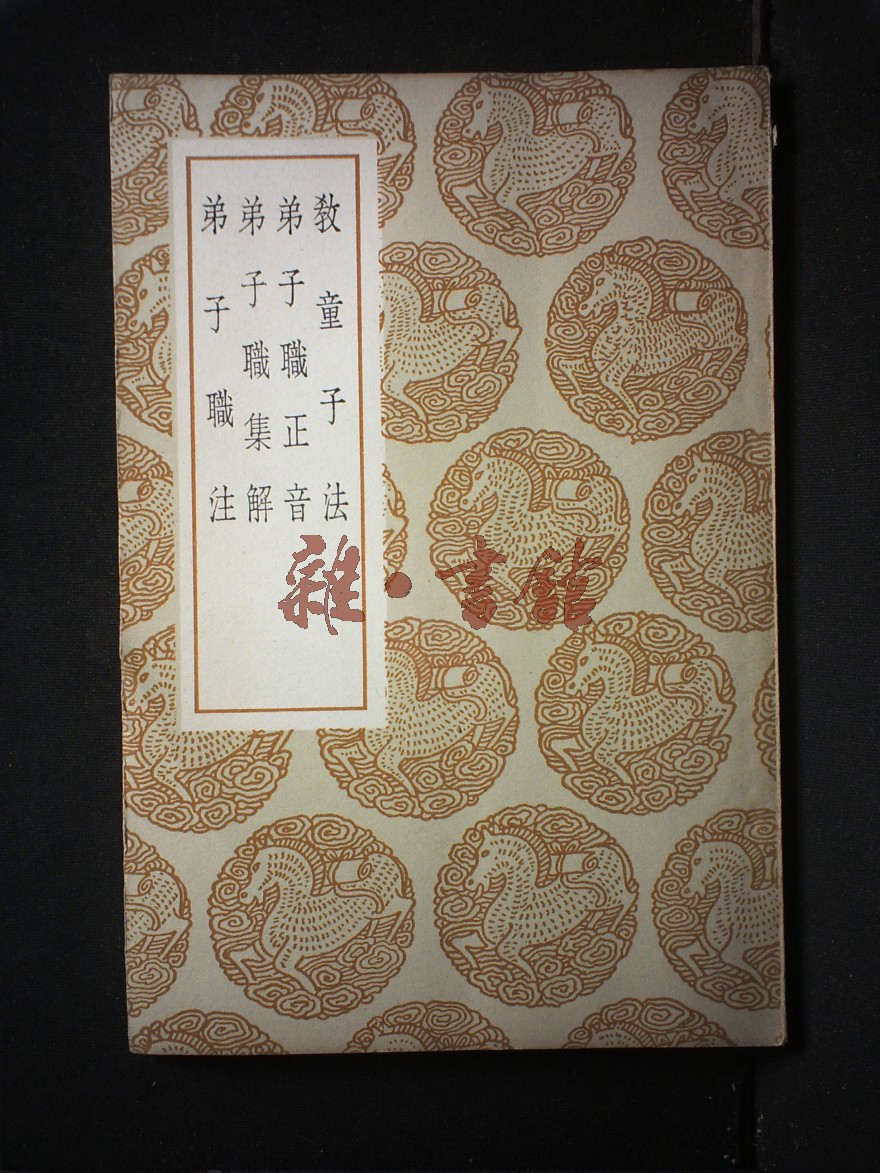 教童子法
弟子職正音
弟子職集解
弟子職注
雜·書館